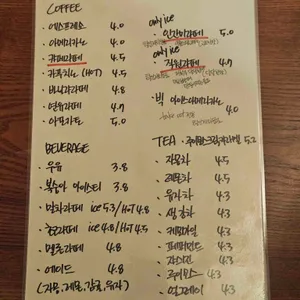 COFFEE
· 에스프레소 4.0
· 아메리카노 4.0
· 카페라떼 4.5
· 카푸치노 (HOT) 4.5
· 바닐라라떼 4.8
· 연유라떼 4.7
· 아포가토 5.0
only ice
· 인간이라떼 5.0
only ice
· 직원라떼 4.7
· 빅 아이스아메리카노
4.0
BEVERAGE
· 우유 3.8
· 복숭아 아이스티 3.8
· 말차라떼 ice 5.3/HoT 4.8
· 초코라떼 ice 4.8/HoT 4.5
· 멜로라떼 4.8
· 에이드 4.8
(자몽,레몬,감귤,유자)
TEA · 루이보스크림카라멜 5.2
· 자몽차 4.5
· 레몬차 4.5
· 유자차 4.3
· 생강차 4.3
· 캐모마일 4.3
· 페퍼민트 4.3
· 자스민 4.3
· 루이보스 4.3
· 얼그레이 4.3